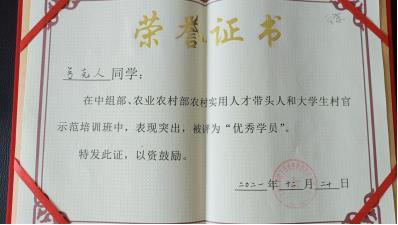 荣誉证书
同学：
在中组部、农业农村部农村实用人才带头人和大学生村官
示范培训班中，表现突出，被评为“优秀学员”。
特发此证，以资鼓励。
二〇二一年十二月二十日